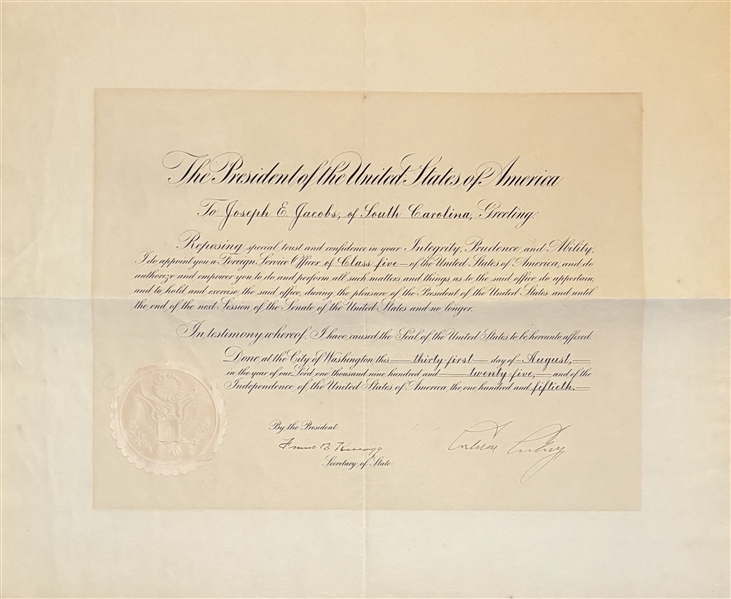 The President of the United States of America
To Joseph E. Jacobs, of South Carolina, Greeting:
Reposing special trust and confidence in your Integrity, Prudence and Ability,
I do appoint you a Foreign Service Officer of Class five of the United States of America, and do
authorize and empower you to do and perform all such matters and things as to the said office do appertain,
and to hold and exercise the said office, during the pleasure of the President of the United States and until
the end of the next Session of the Senate of the United States and no longer.
In testimony whereof, I have caused the Seal of the United States to be hereunto affixed.
Done at the City of Washington this thirty-first day of August,
in the year of our Lord one thousand nine hundred and twenty five, and of the
Independence of the United States of America the one hundred and fiftieth.
By the President:
Frank B. Kellogg
Calvin Coolidge
Secretary of State.